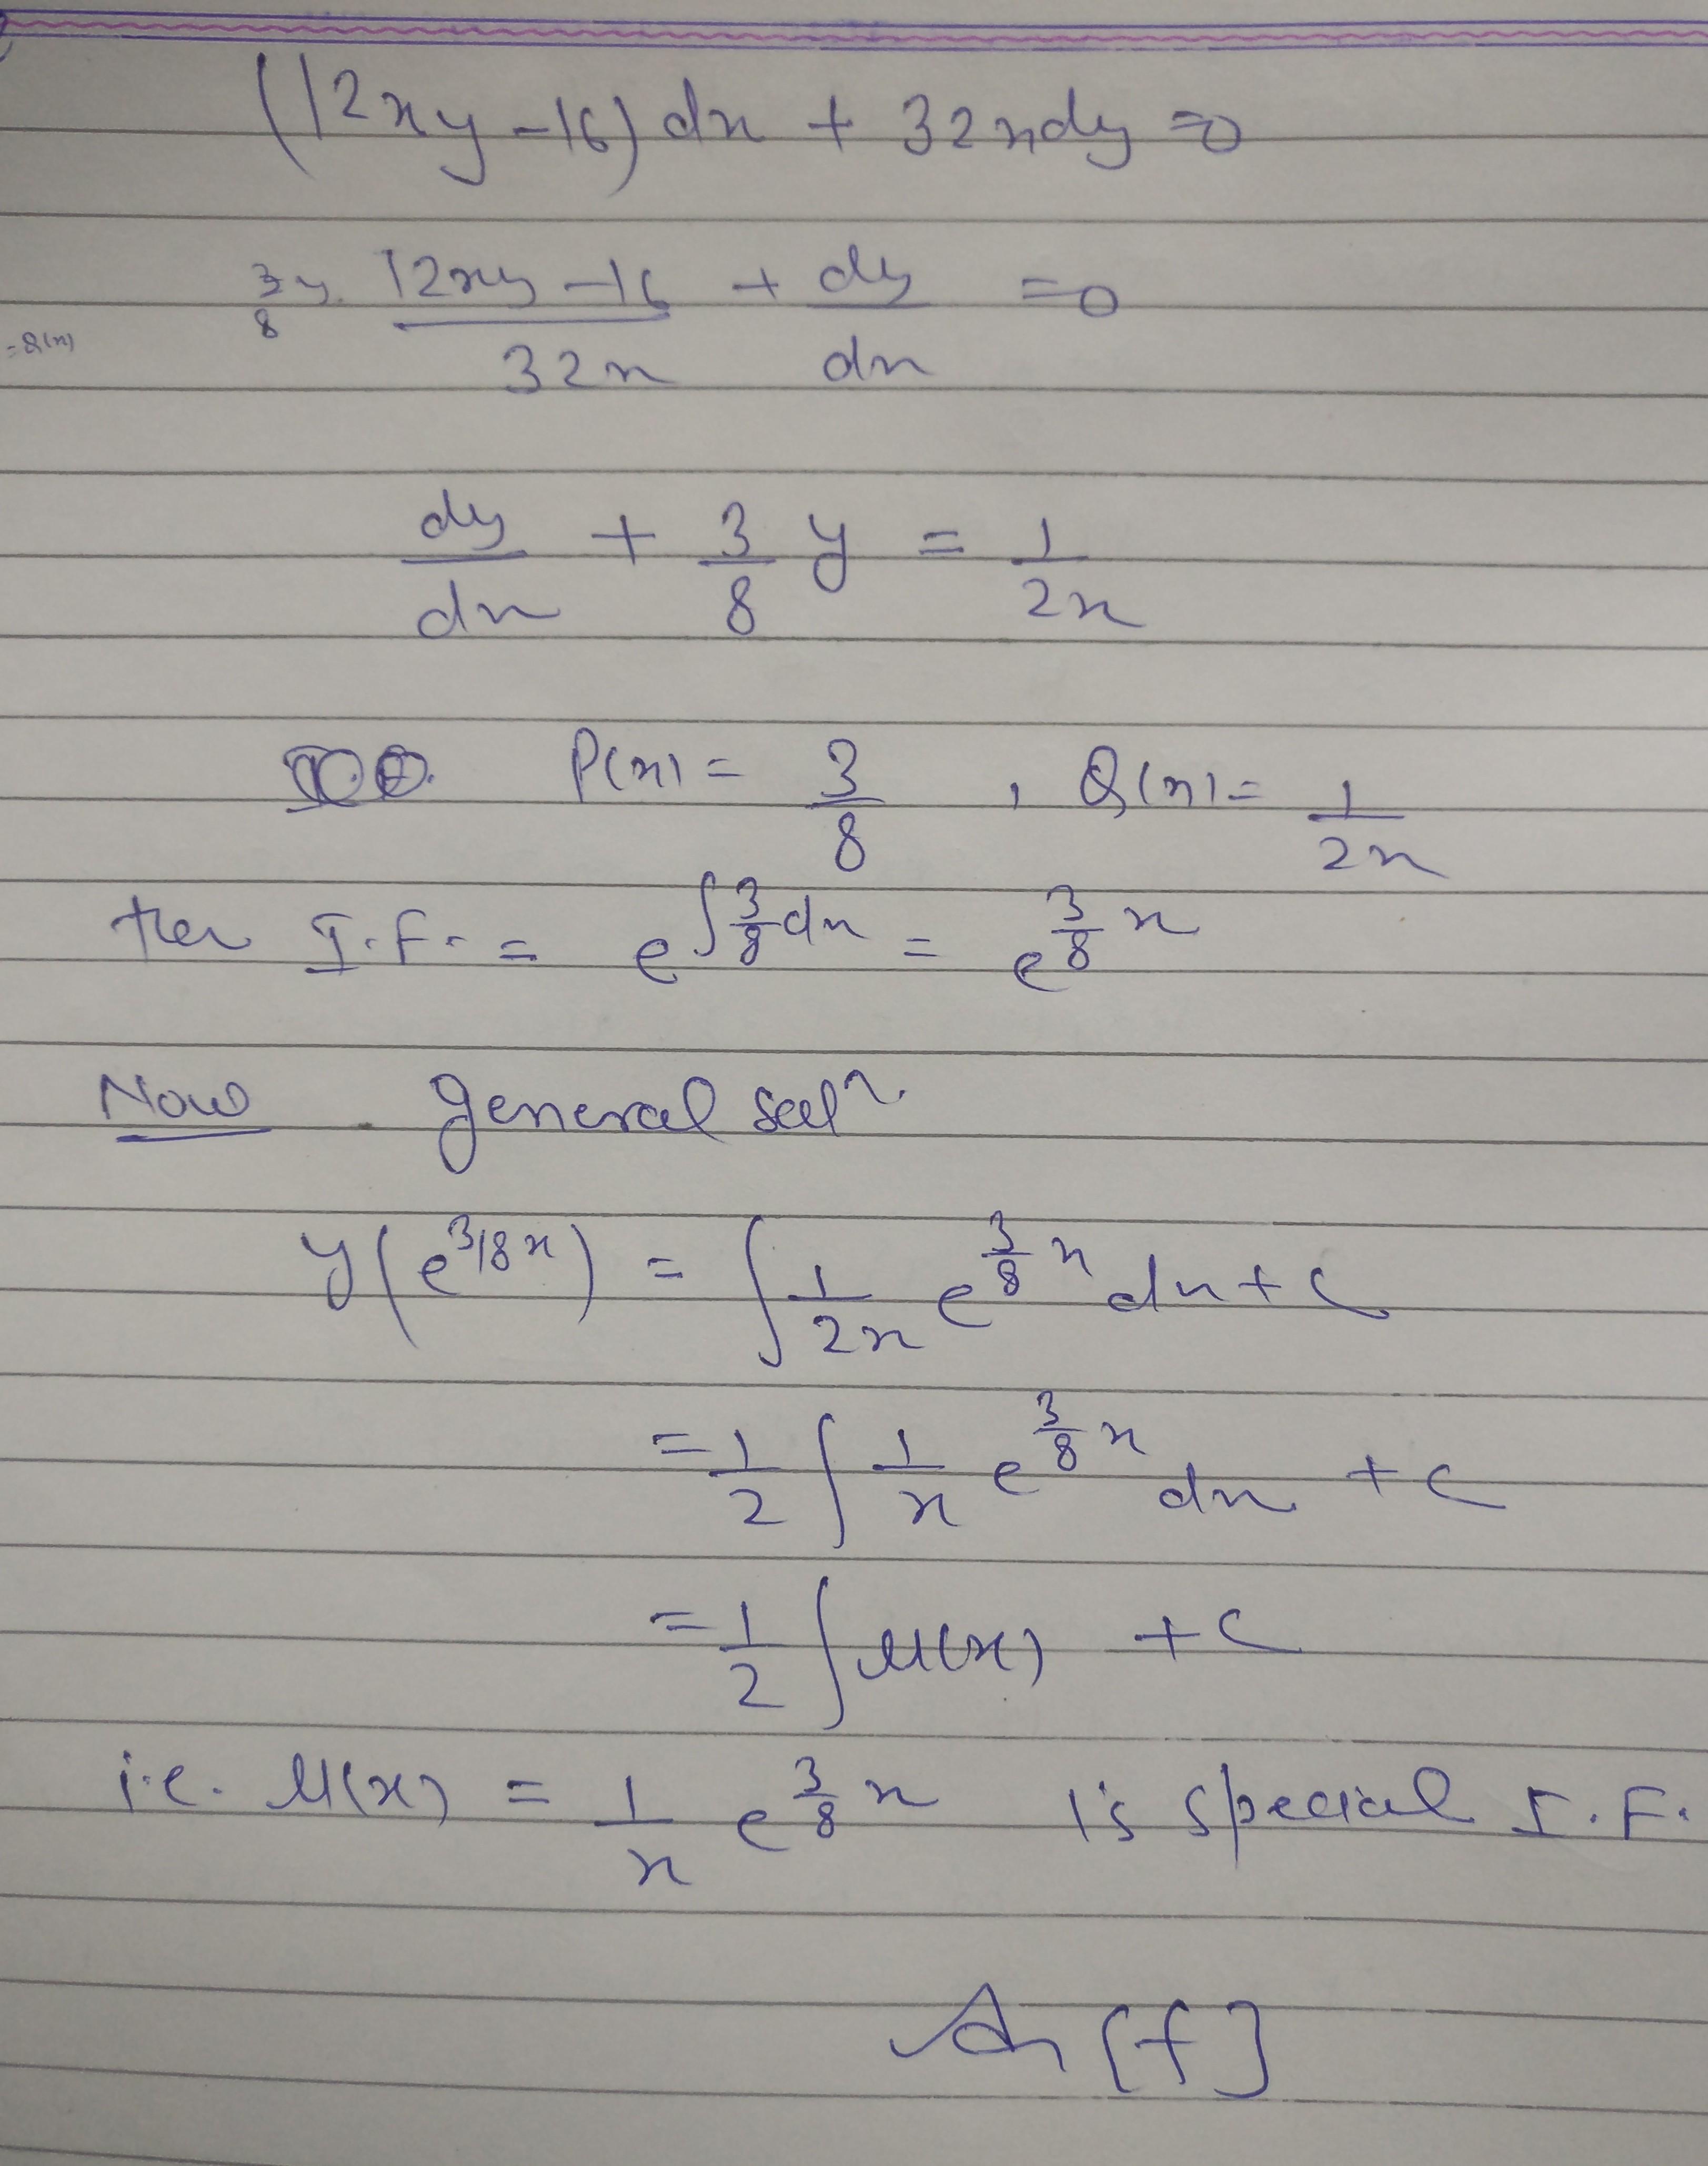 (12xy - 16) dx + 32x dy = 0
3/8 y. (12xy - 16)/(32x) + dy/dx = 0
= Q(x)
dy/dx + 3/8 y = 1/(2x)
P(x) = 3/8 , Q(x) = 1/(2x)
then I.F. = e^{∫ 3/8 dx} = e^{3/8 x}
Now general sol^n.
y(e^{3/8 x}) = ∫ 1/(2x) e^{3/8 x} dx + C
= 1/2 ∫ 1/x e^{3/8 x} dx + C
= 1/2 ∫ μ(x) + C
i.e. μ(x) = 1/x e^{3/8 x} is special I.F.
An [f]